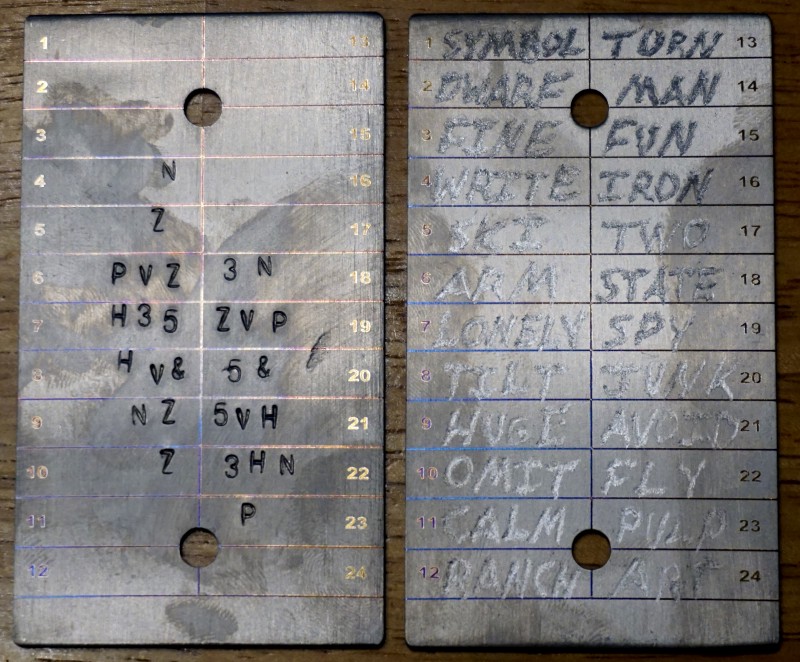 1 13
2 14
3 15
4 N 16
5 Z 17
6 PVZ 3N 18
7 H35 ZVP 19
8 HV& 5& 20
9 NZ 5VH 21
10 Z 3HN 22
11 P 23
12 24
1 SYMBOL TORN 13
2 DWARF MAN 14
3 FINE FUN 15
4 WRITE IRON 16
5 SKI TWO 17
6 ARM STATE 18
7 LONELY SPY 19
8 TILT JUNK 20
9 HUGE AVOID 21
10 OMIT FLY 22
11 CALM PULP 23
12 RANCH 24